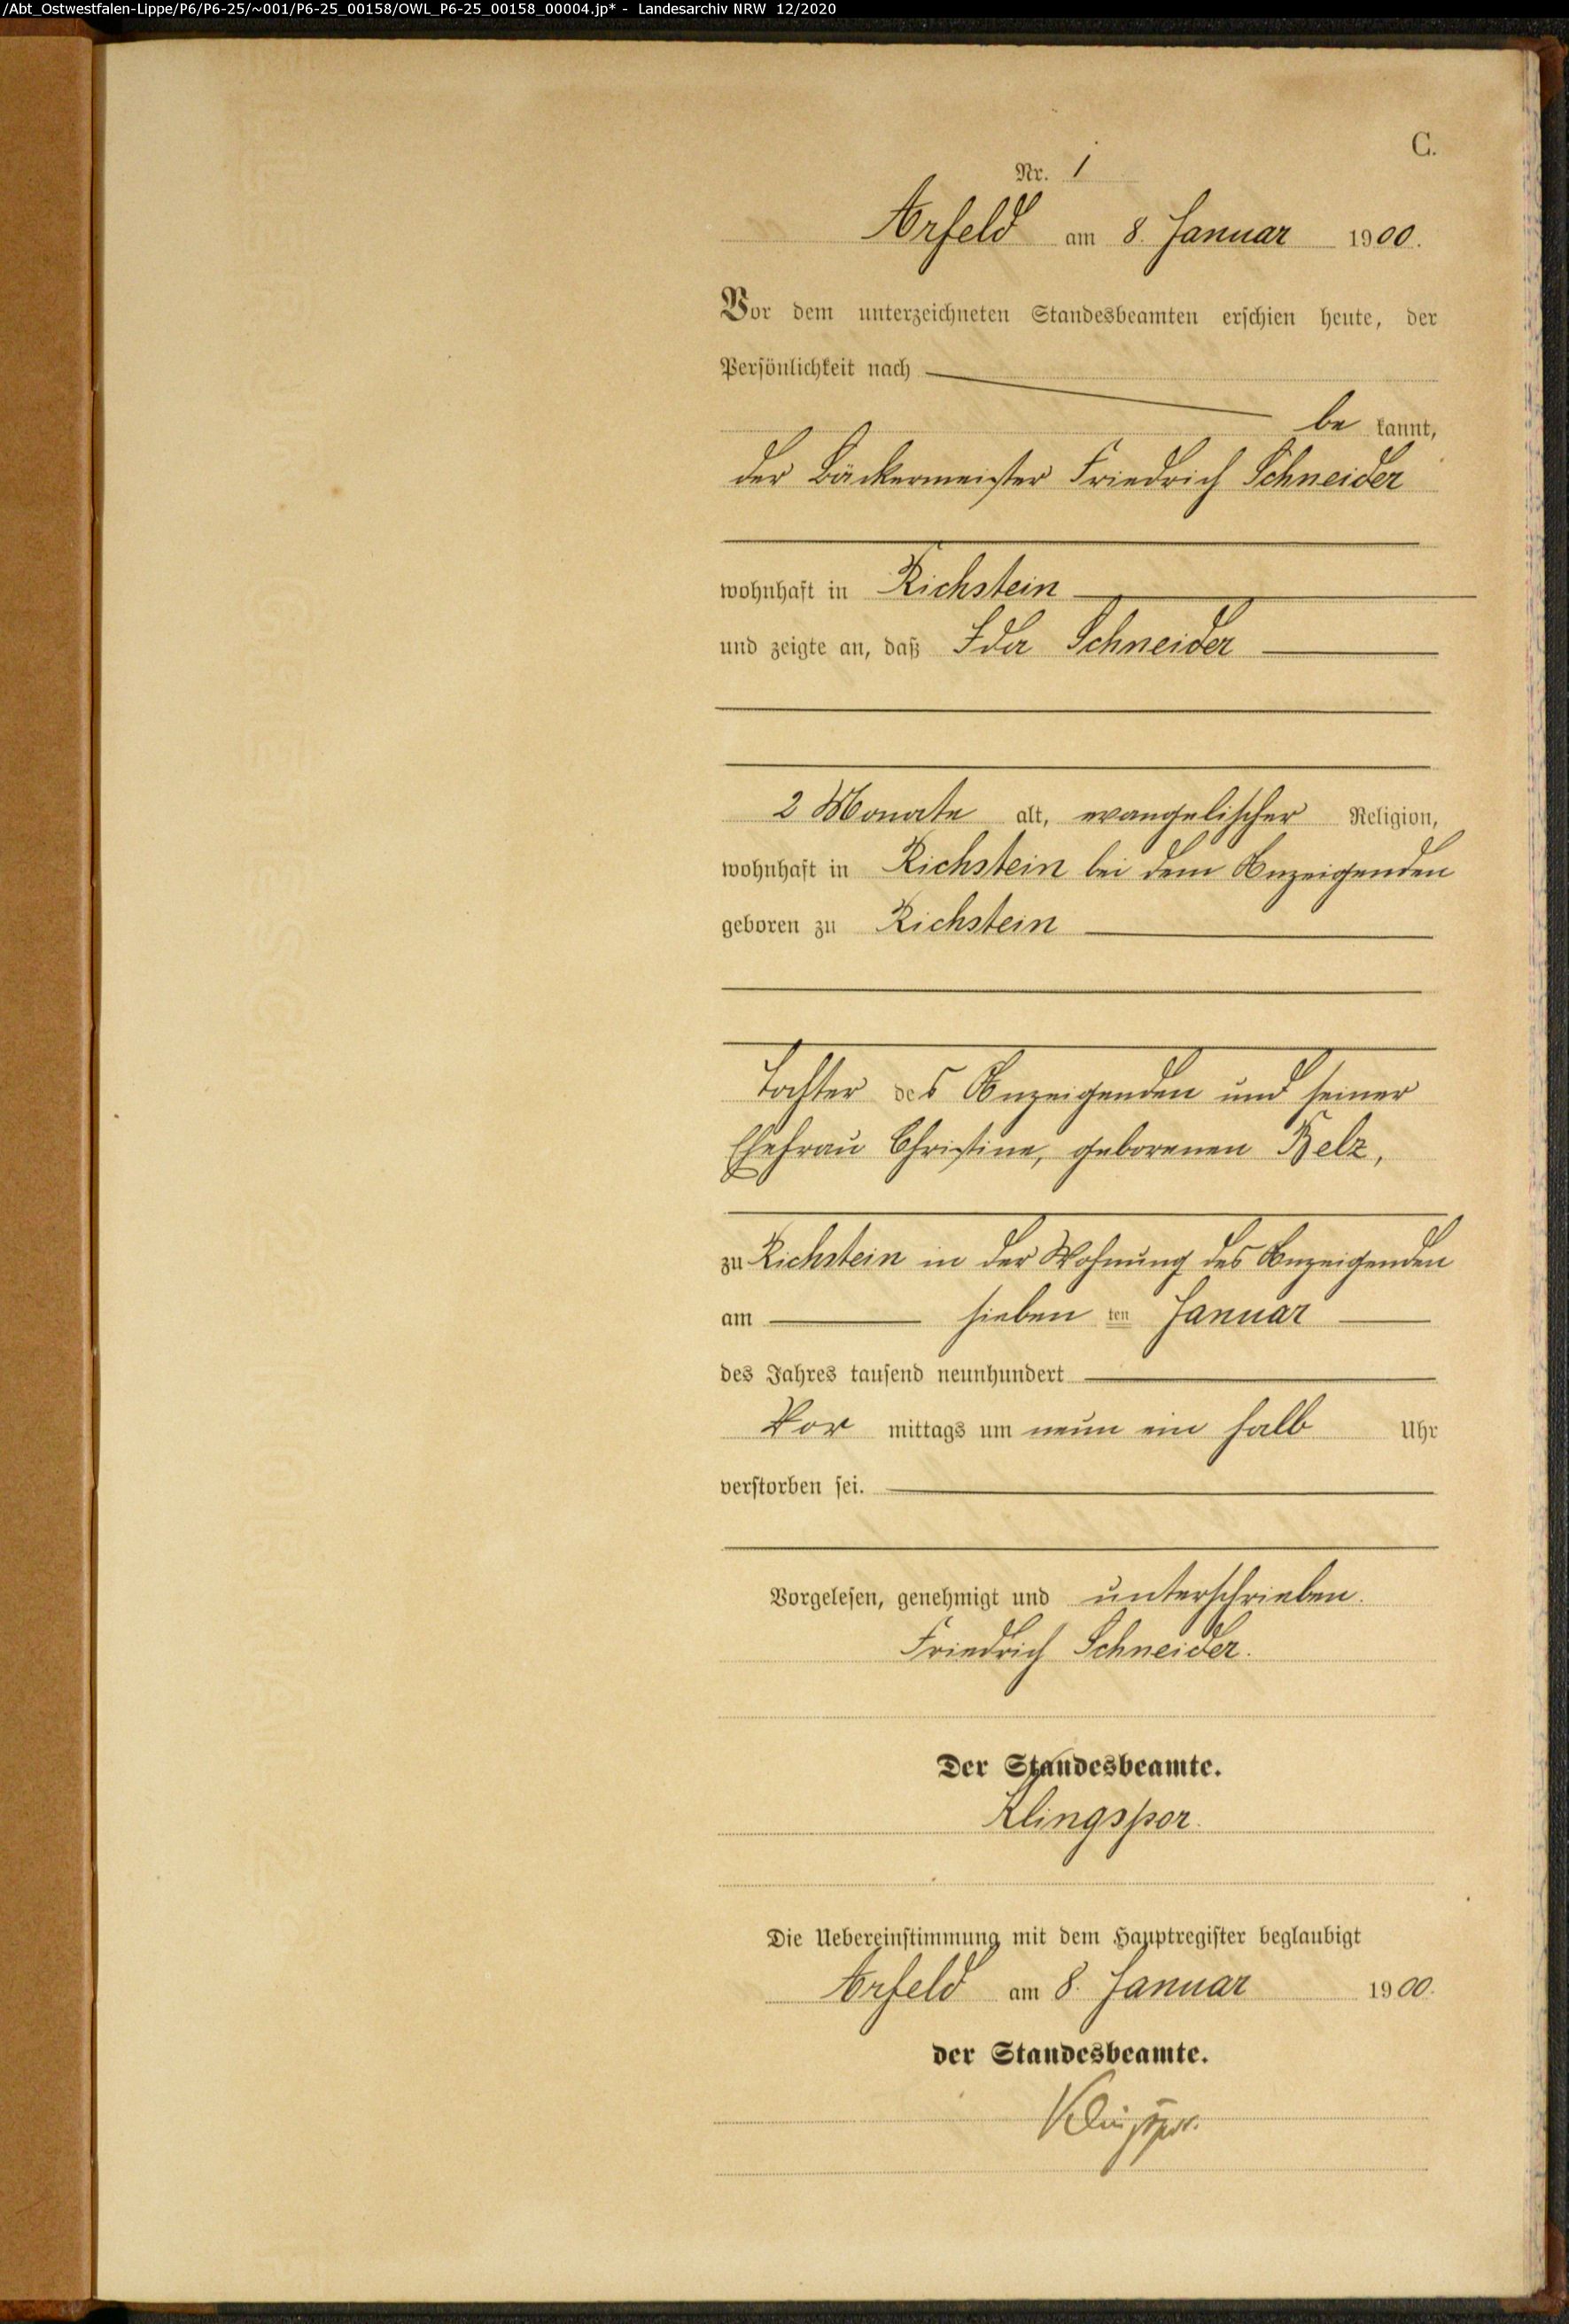 /Abt_Ostwestfalen-Lippe/P6/P6-25/~001/P6-25_00158/OWL_P6-25_00158_00004.jp* - Landesarchiv NRW 12/2020
C.
Nr. 1
Arfeld am 8. Januar 1900.
Vor dem unterzeichneten Standesbeamten erschien heute, der
Persönlichkeit nach
be kannt,
der Bäckermeister Friedrich Schneider
wohnhaft in Richstein
und zeigte an, daß Ida Schneider
2 Monate alt, evangelischer Religion,
wohnhaft in Richstein bei dem Anzeigenden
geboren zu Richstein
Tochter des Anzeigenden und seiner
Ehefrau Christine, geborenen Belz,
zu Richstein in der Wohnung des Anzeigenden
am sieben ten Januar
des Jahres tausend neunhundert
Vor mittags um neun ein halb Uhr
verstorben sei.
Vorgelesen, genehmigt und unterschrieben.
Friedrich Schneider.
Der Standesbeamte.
Klingspor.
Die Uebereinstimmung mit dem Hauptregister beglaubigt
Arfeld am 8. Januar 1900.
der Standesbeamte.
Klingspor.